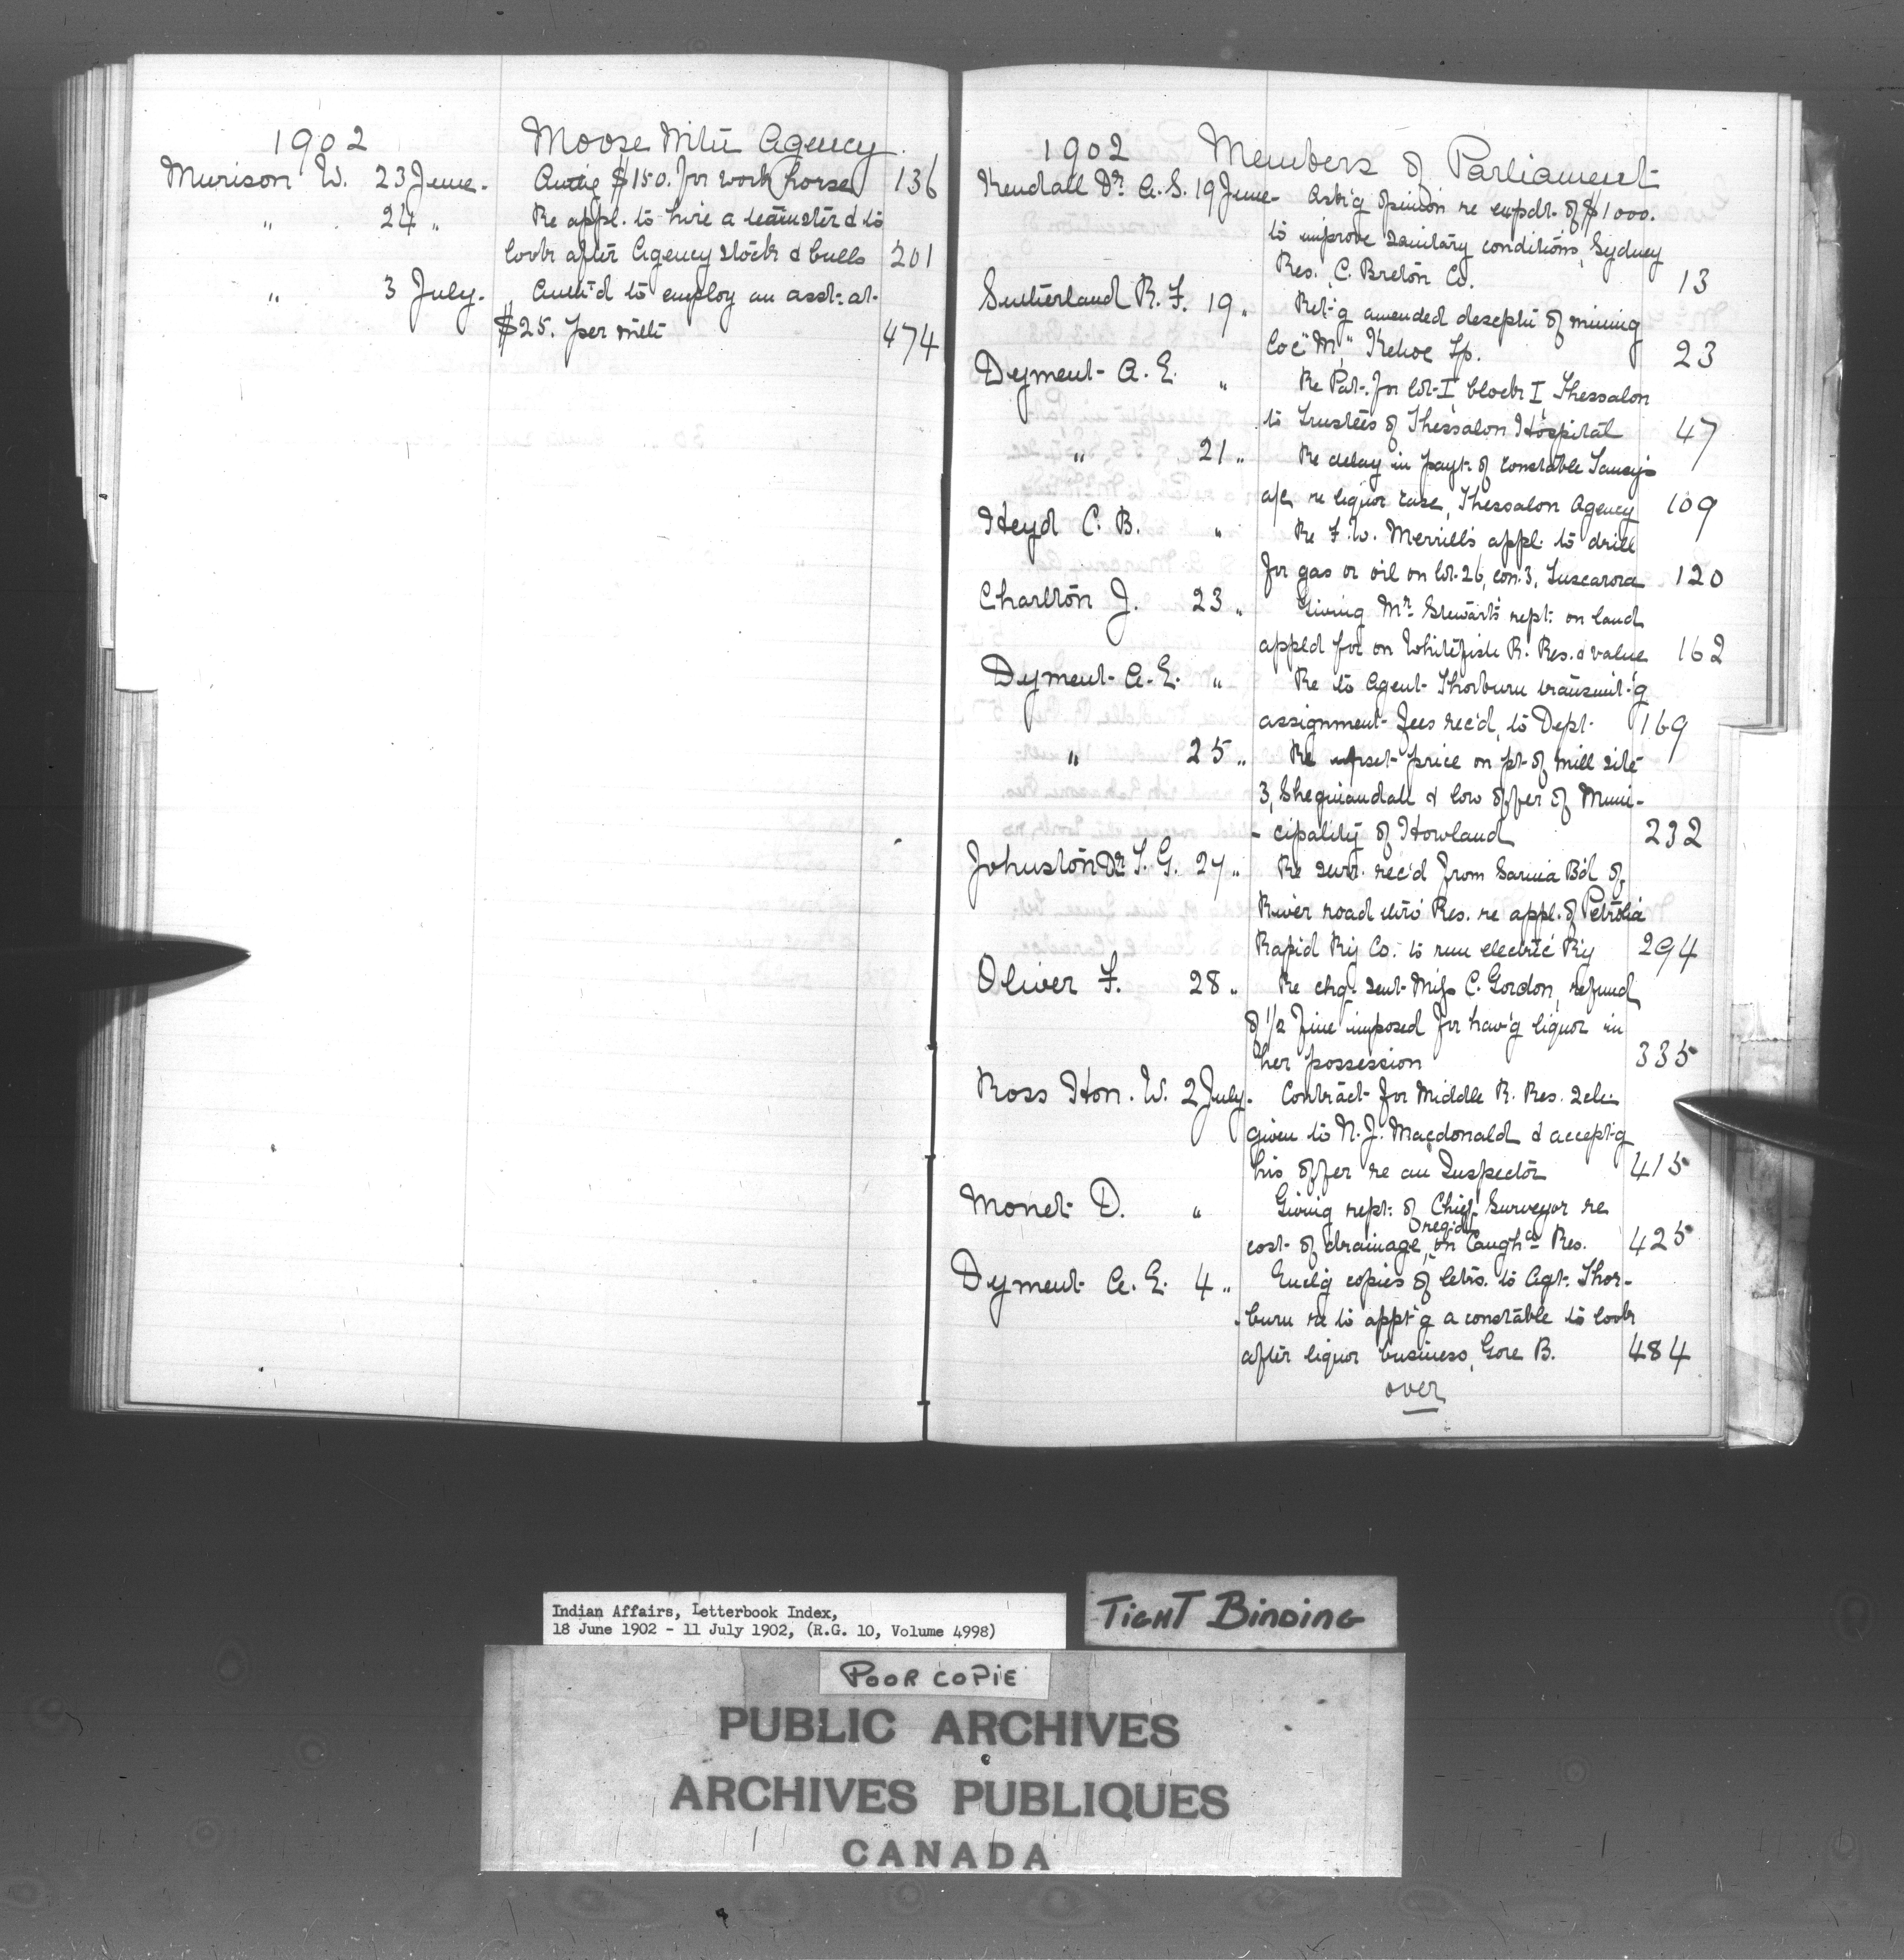 1902 Moose Mtn Agency.
Murison W. 23 June. Autig $150. for work horse 136
" 24 " Re appl. to hire a teamster & to
look after Agency stock & bulls 201
" 3 July. Auth'd to employ an asst. at
$25. per mth 474
1902 Members of Parliament
Kendall Dr. A. S. 19 June Ask'g opinion re expdt. of $1000.
to improve sanitary conditions, Sydney
Res., C. Breton Co. 13
Sutherland R. F. 19 " Ret'g amended descptn of mining
loc "M," Kehoe Tp. 23
Dyment A. E. " Re Pat. for lot I block I, Thessalon
to trustees of Thessalon Hospital 47
" 21 " Re delay in payt. of constable
a/c re liquor case, Thessalon Agency 109
Heyd C. B. " Re F. W. Merrill's appl. to drill
for gas or oil on lot 26, con. 3, Tuscarora 120
Charlton J. 23 " Giving Mr. Stewart's rept. on land
appl'd for on Whitefish R. Res. & value 162
Dyment A. E. " Re to Agent Thorburn transmit'g
assignment fees rec'd, to Dept. 169
" 25 " Re upset price on pt. of mill site
3, Sheguiandah & low offer of Muni-
-cipality of Howland 232
Johnston Dr. T. G. 27 " Re surr. rec'd from Sarnia Bd. of
River road thro' Res. re appl. of Petrolia
Rapid Ry Co. to run electric Ry 294
Oliver F. 28 " Re chq. sent Miss C. Gordon, refund
of 1/2 fine imposed for hav'g liquor in
her possession 335
Ross Hon. W. 2 July. Contract for Middle R. Res. Schl.
given to N. J. Macdonald & accept'g
his offer re an Inspector 415
Monet D. " Giving rept. of Chief Surveyor re
cost of drainage, req'd on Caugh'a Res. 425
Dyment A. E. 4 " Encl'g copies of letrs. to Agt. Thor-
-burn re to appt'g a constable to look
after liquor business, Gore B. 484
over
Indian Affairs, Letterbook Index,
18 June 1902 - 11 July 1902, (R.G. 10, Volume 4998)
TIGHT BINDING
POOR COPIE
PUBLIC ARCHIVES
ARCHIVES PUBLIQUES
CANADA